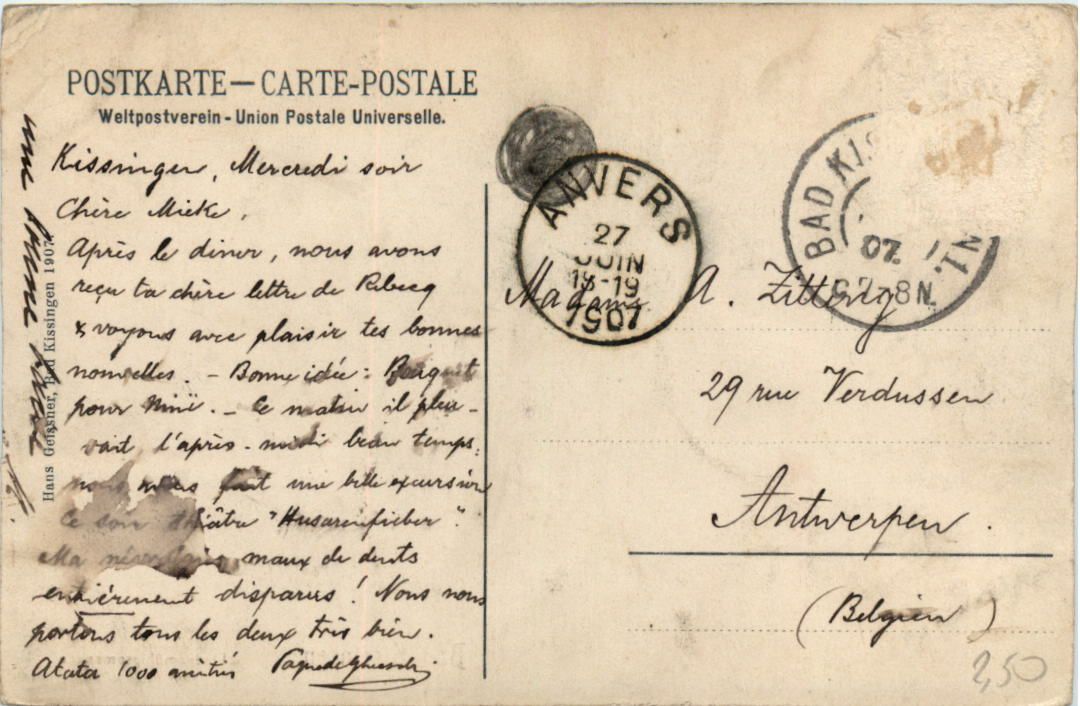 POSTKARTE — CARTE-POSTALE
Weltpostverein - Union Postale Universelle.
Kissingen, Mercredi soir
Chère Mieke,
Après le diner, nous avons
reçu ta chère lettre de Rebecq
& voyons avec plaisir tes bonnes
nouvelles. - Bonne idée: Parquet
pour Mini. - Ce matin il pleu-
vait l'après-midi beau temps:
nous avons fait une belle excursion
Ce soir théâtre "Husarenfieber".
Ma maux de dents
entièrement disparus! Nous nous
portons tous les deux très bien.
1000
Hans Geissner, Bad Kissingen 1907
ANVERS
27
JUIN
18-19
1907
BAD KIS
07.
7-8N.
Madame A. Zitting
29 rue Verdussen
Antwerpen.
(Belgien)
2,50